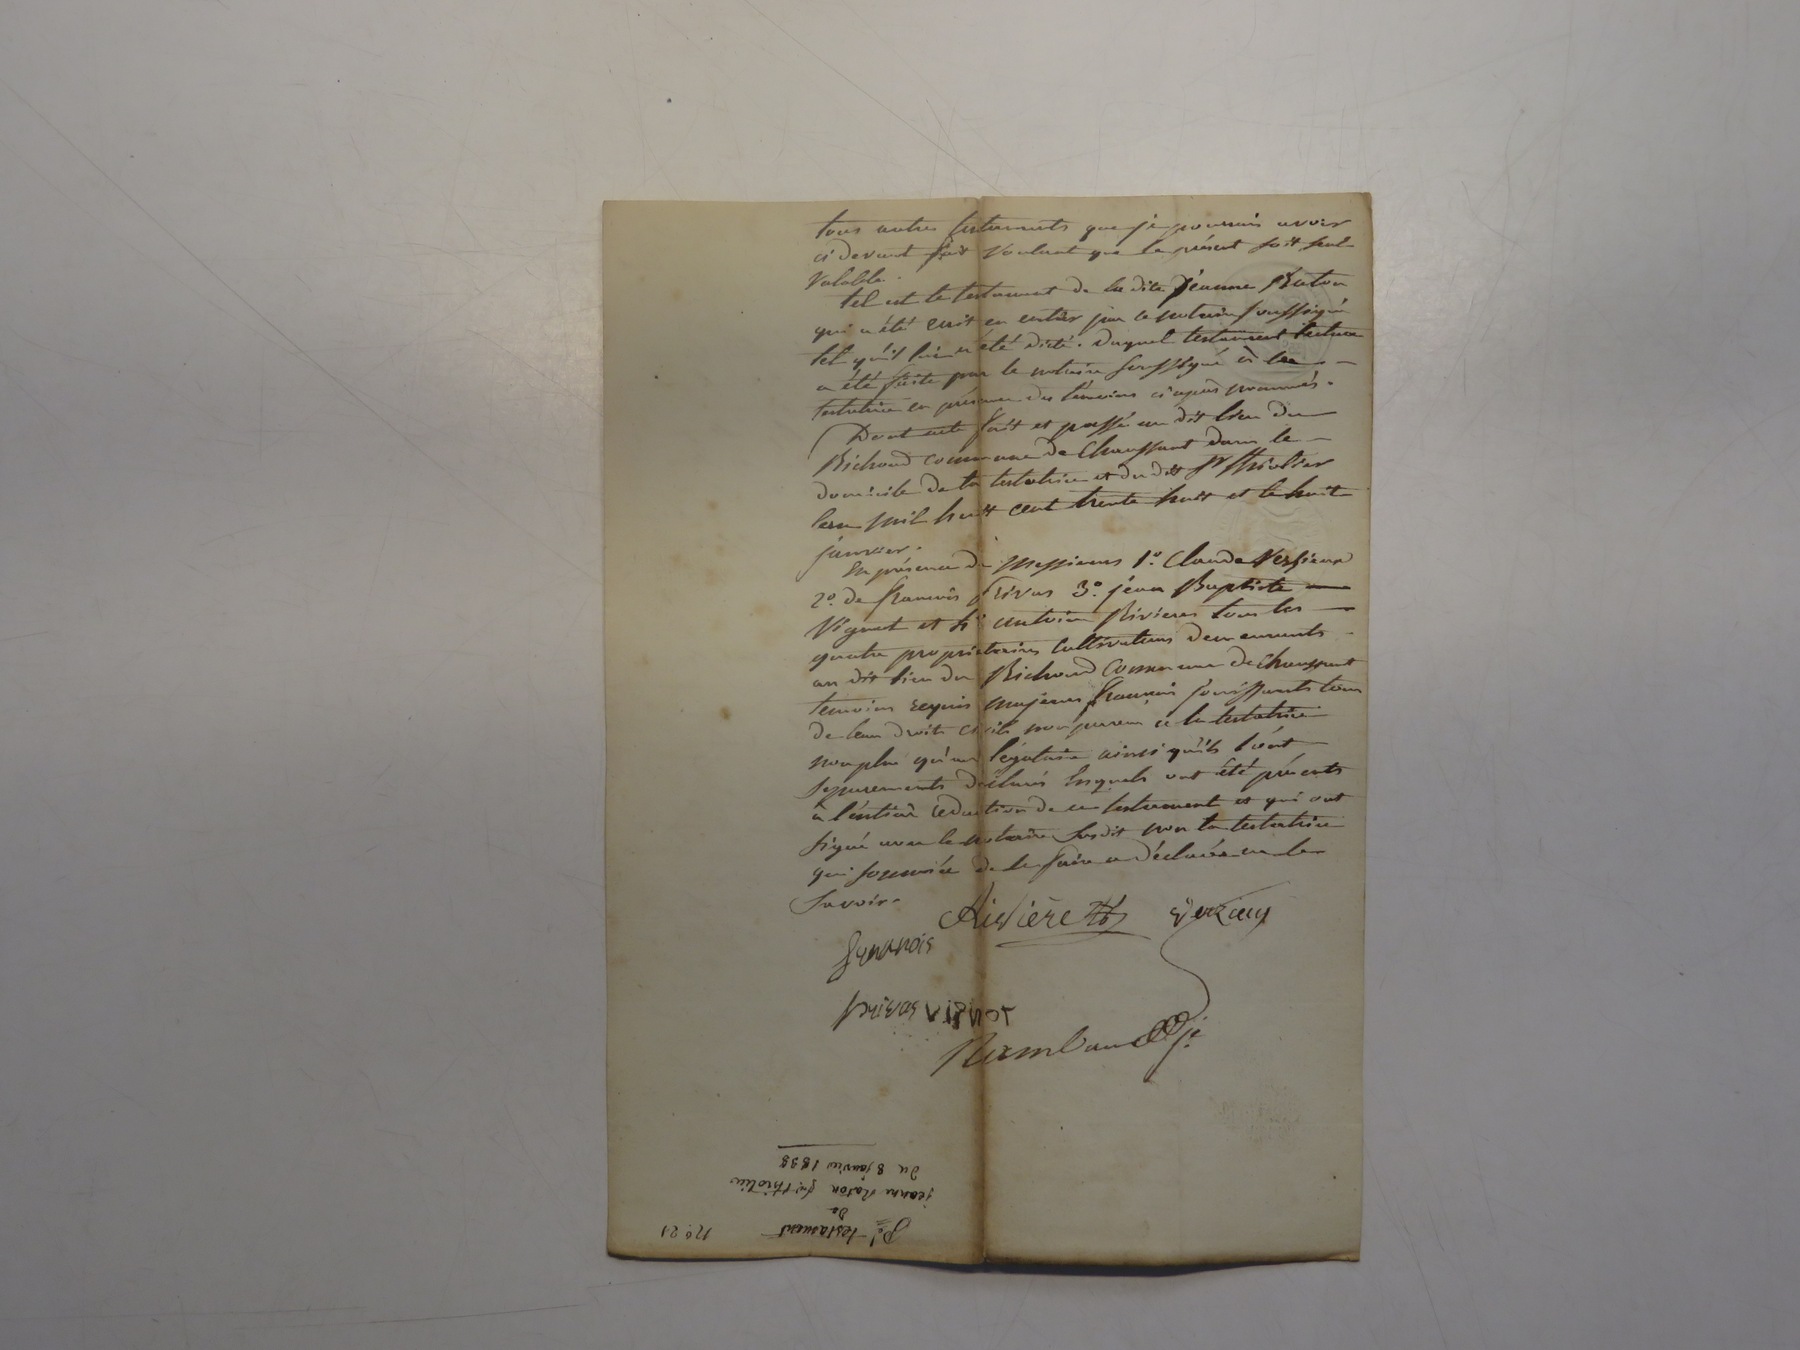 tous autres testaments que je pourrais avoir
ci devant fait voulant que le présent soit seul
valable.
tel est le testament de la dite Jeanne Raton
qui a été écrit en entier par le notaire soussigné
tel qu'il lui a été dicté. Duquel testament lecture
a été faite par le notaire soussigné à la
testatrice en présence des témoins ci après nommés.
Dont acte fait et passé au dit lieu du
Richoud commune de Chaussant dans le
domicile de la testatrice et du dit Sr Thiolier
l'an mil huit cent trente huit et le huit
janvier.
En présence de messieurs 1º. Claude
2º. de françois 3º. jean Baptiste
Vignat et 4º antoine Riviere tous les
quatre propriétaires cultivateurs demeurants
au dit lieu du Richoud commune de Chaussant
temoins requis majeurs français jouissants tous
de leur droits civils non parens à la testatrice
non plus qu'au légataire ainsi qu'ils l'ont
séparements déclarés lesquels ont été présents
à l'entière rédaction de ce testament et qui ont
signé avec le notaire susdit non la testatrice
qui sommée de le faire a déclarée ne le
savoir.
Rivière
Rambaud
Pel testament
De
jeanne Raton fe Thiolier
du 8 janvier 1838
Nº. 21